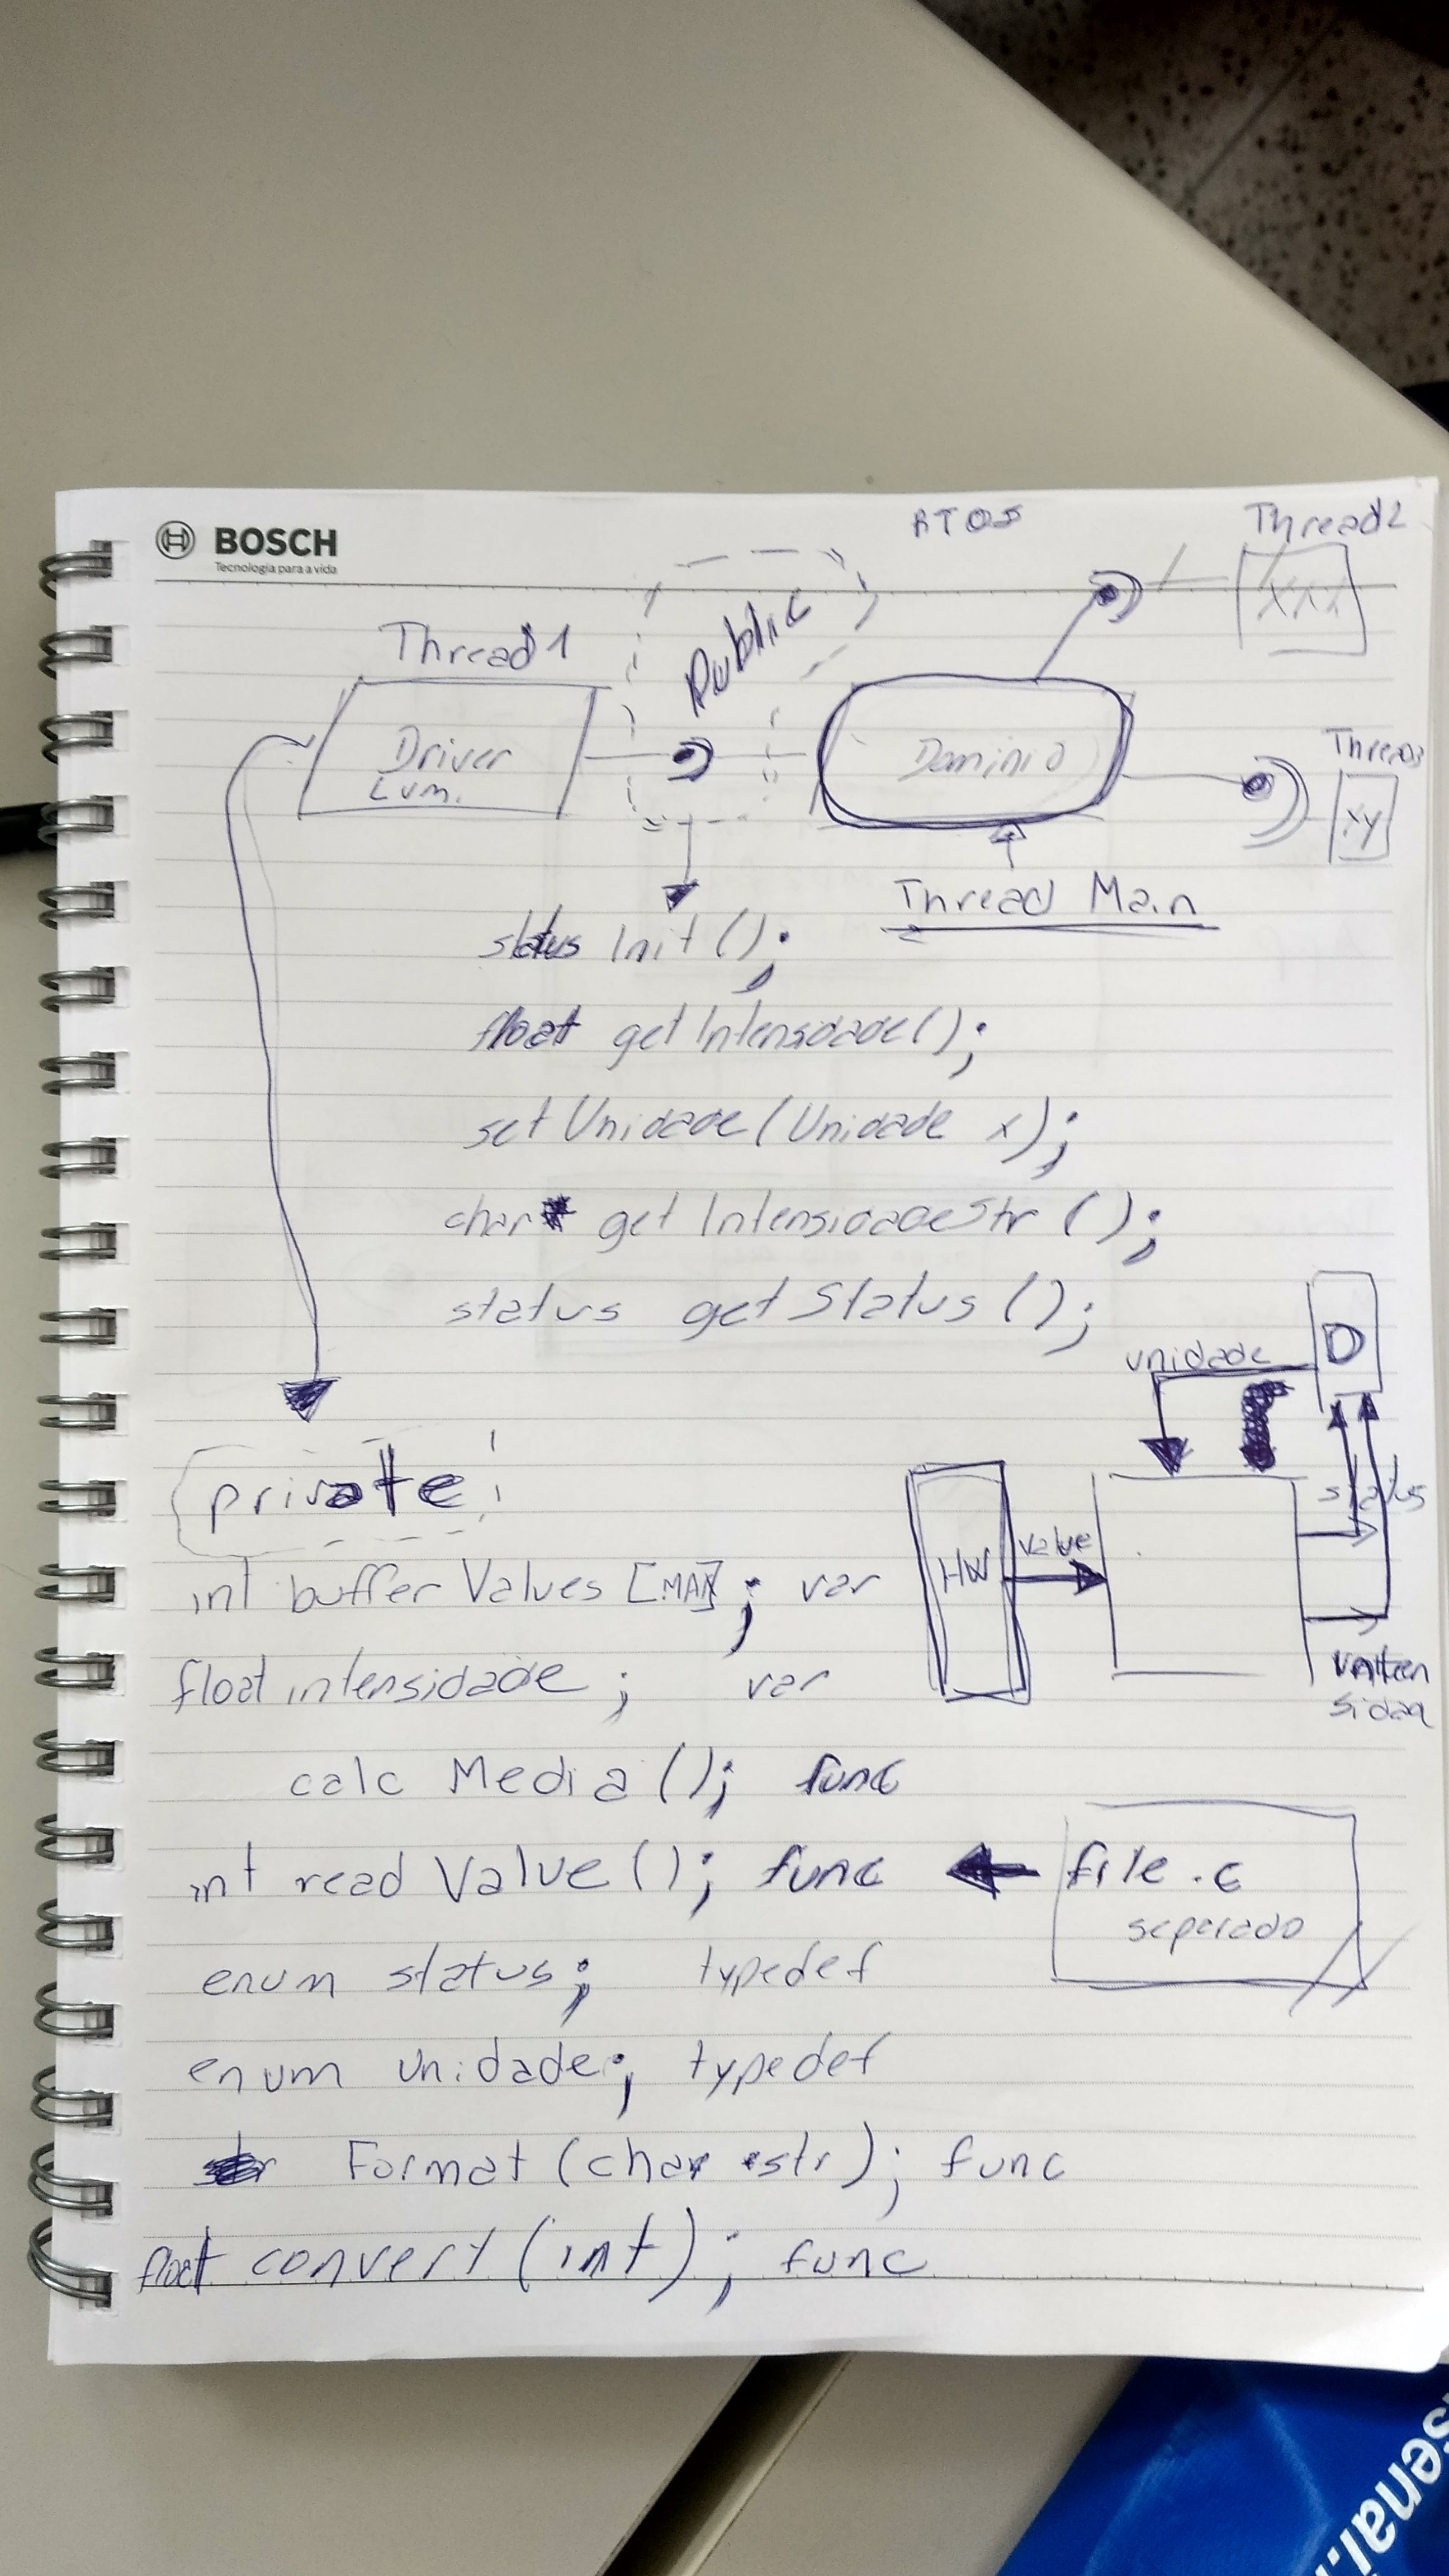 BOSCH
Tecnologia para a vida
RTOS
Thread2
XXX
Thread 1
Public
Driver
Lum.
Dominio
Thread3
xy
Thread Main
status Init();
float getIntensidade();
setUnidade(Unidade x);
char* getIntensidadeStr();
status getStatus();
D
unidade
private
status
HW
value
int bufferValues[MAX]; var
float intensidade; var
calc Media(); func
int read Value(); func
file.c
separado
enum status; typedef
enum unidade; typedef
Format(char *str); func
float convert(int); func